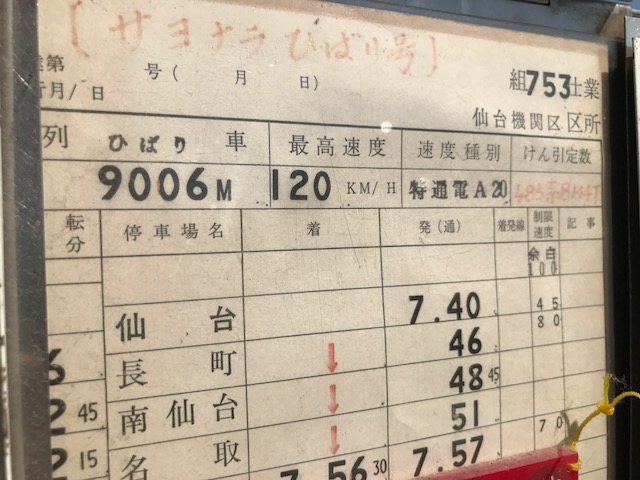 [サヨナラひばり号]
第 号( 月 日) 組753仕業
行月/日 仙台機関区区所
列 ひばり 車 最高速度 速度種別 けん引定数
9006M 120 KM/H 特通電A20 485系8M4T
転分 停車場名 着 発(通) 着発線 制限速度 記事
余白
100
仙台 7.40 45
80
長町 ↓ 46
45 南仙台 ↓ 48 45
15 名取 ↓ 51 70
7.56 30 7.57